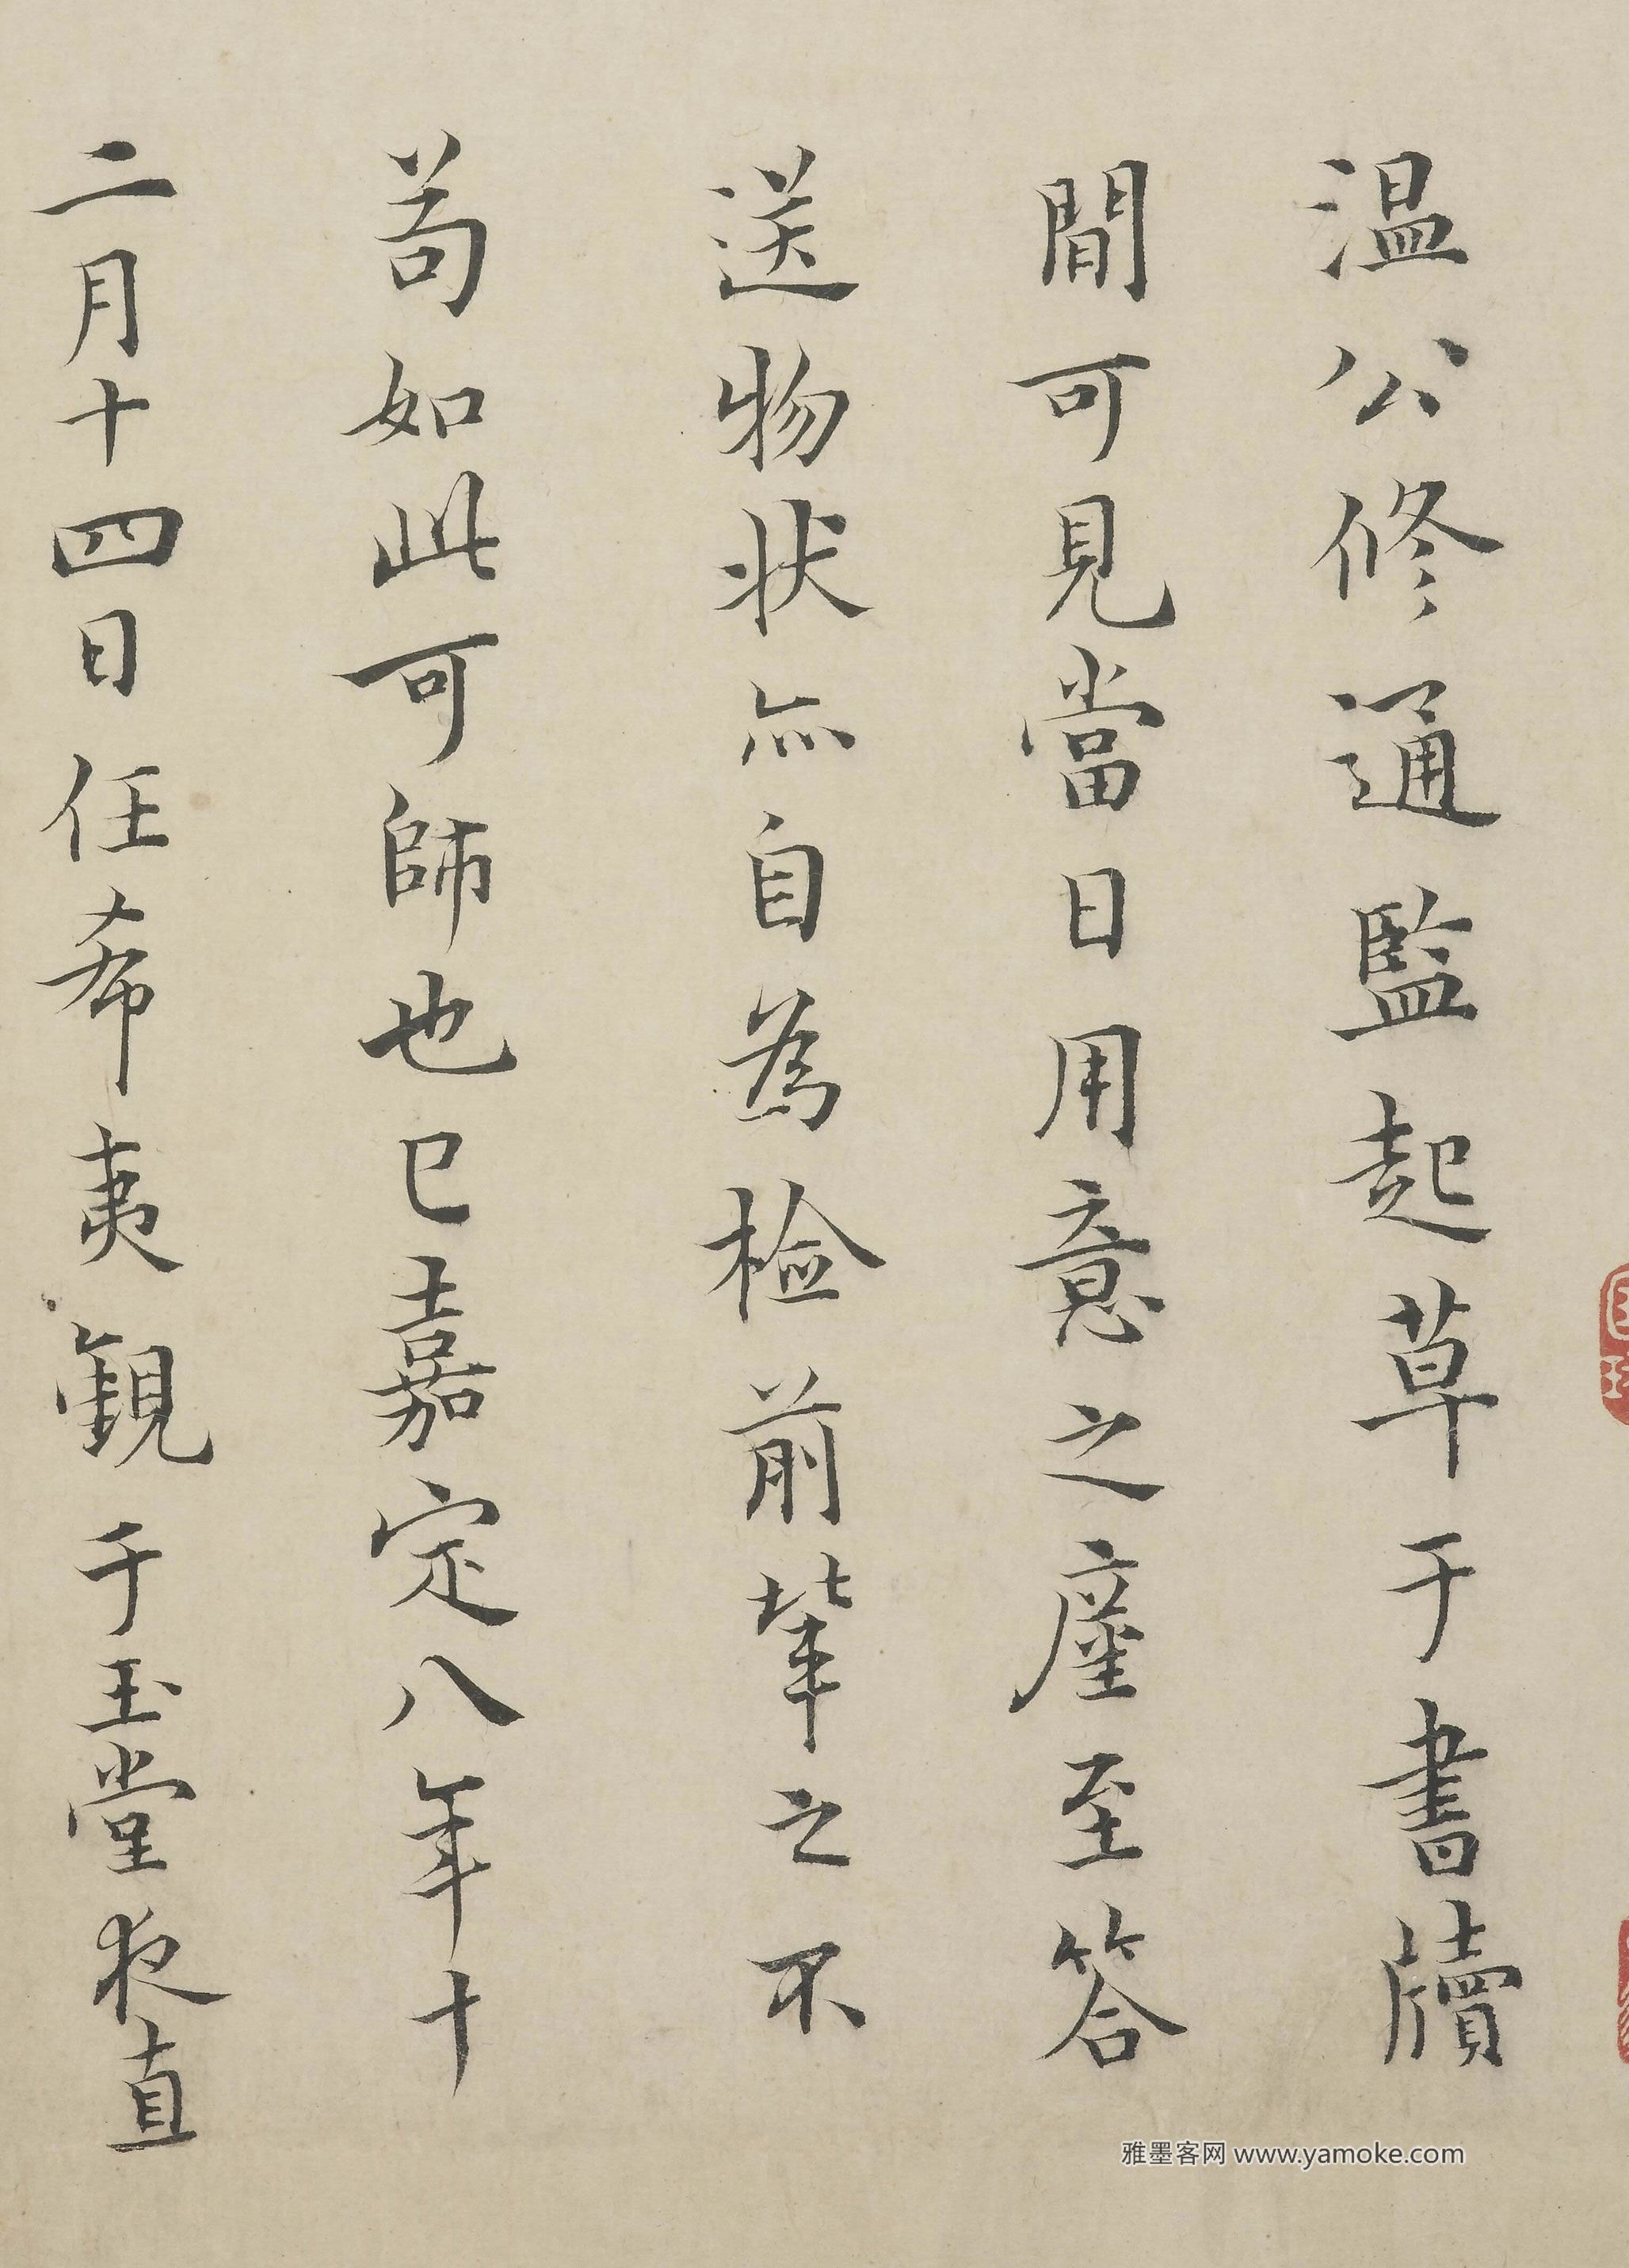 温公修通監起草于書牘
間可見當日用意之廑至答
送物状亦自為检前軰之不
苟如此可師也已嘉定八年十
二月十四日任希夷観于玉堂夜直
雅墨客网 www.yamoke.com